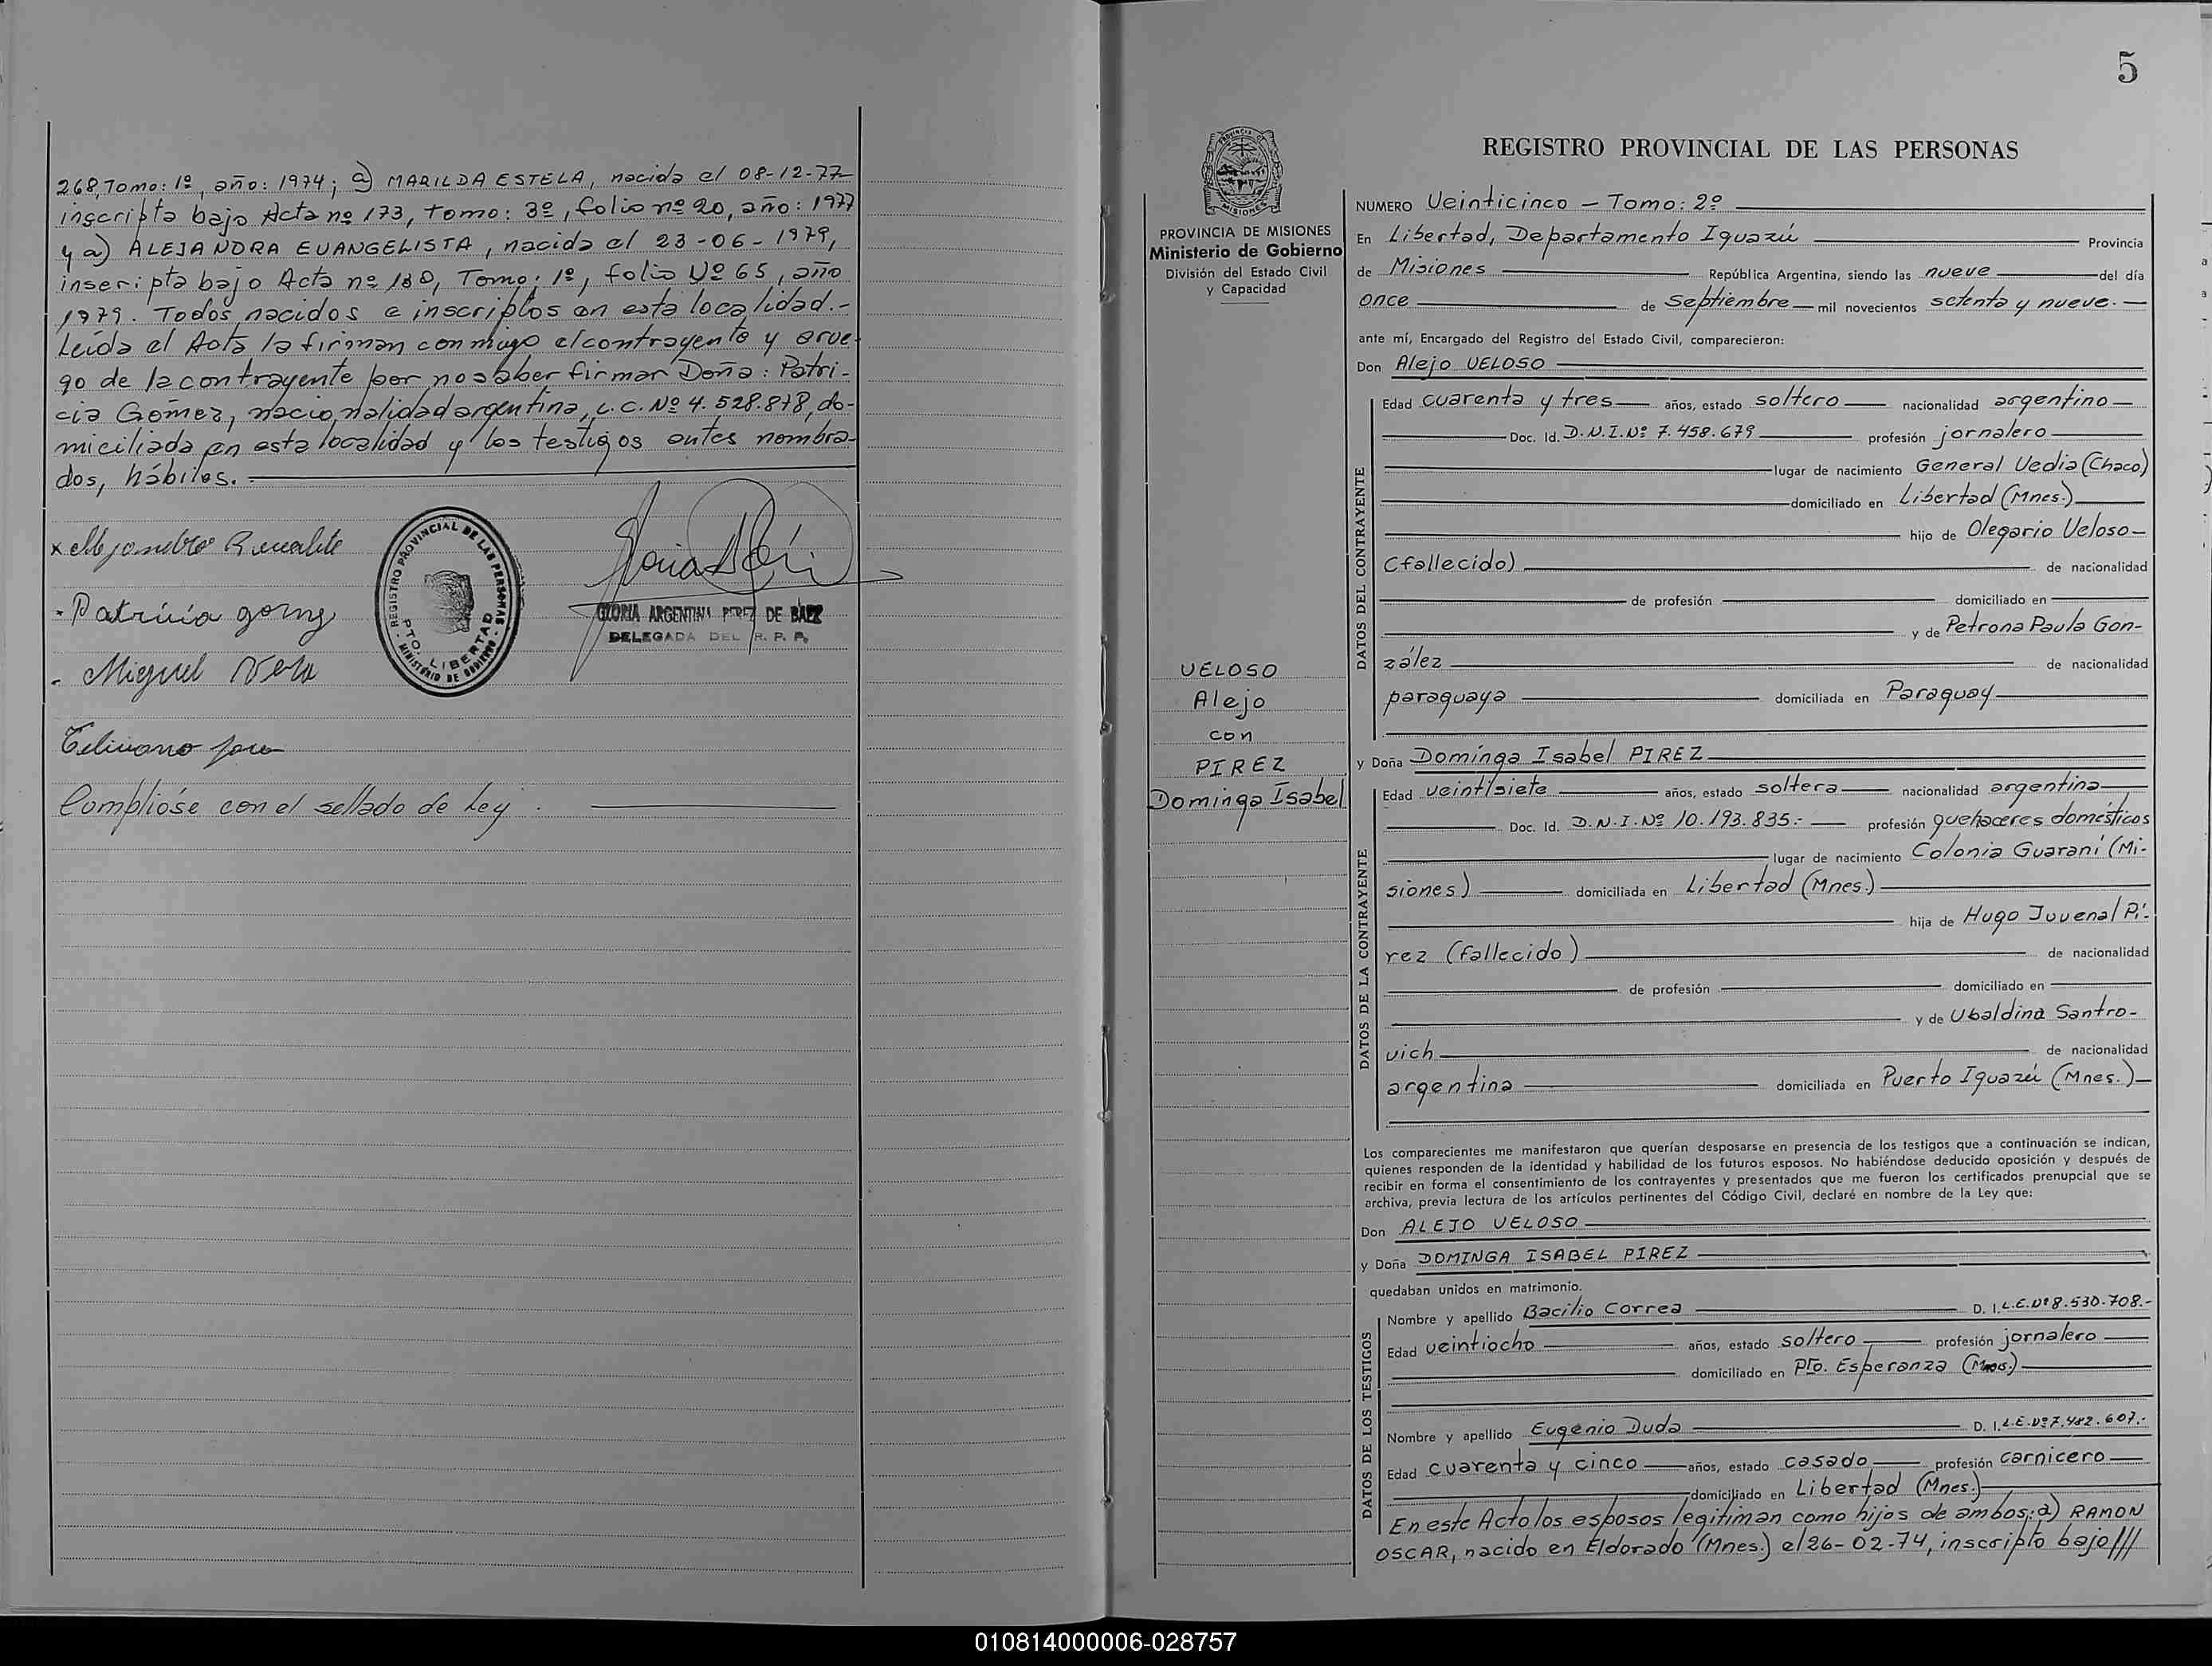 268, Tomo: 1º, año: 1974; a) MARILDA ESTELA, nacida el 08-12-77
inscripta bajo Acta nº 173, tomo: 3º, folio nº 20, año: 1977
y a) ALEJANDRA EVANGELISTA, nacida el 23-06-1979,
inscripta bajo Acta nº 180, Tomo: 1º, folio Nº 65, año
1979. Todos nacidos e inscriptos en esta localidad.-
Leída el Acta la firman conmigo el contrayente y a rue-
go de la contrayente por no saber firmar Doña: Patri-
cia Gómez, nacionalidad argentina, L.C. Nº 4.528.878, do-
miciliada en esta localidad y los testigos antes nombra-
dos, hábiles.
x Alejandro
REGISTRO PROVINCIAL DE LAS PERSONAS
PTO. LIBERTAD
MINISTERIO DE GOBIERNO
GLORIA ARGENTINA PEREZ DE BAEZ
DELEGADA DEL R. P. P.
Patricia gomez
Miguel Vera
Cumplióse con el sellado de Ley.
5
PROVINCIA DE MISIONES
Ministerio de Gobierno
División del Estado Civil
y Capacidad
REGISTRO PROVINCIAL DE LAS PERSONAS
NUMERO Veinticinco - Tomo: 2º
En Libertad, Departamento Iguazú Provincia
de Misiones República Argentina, siendo las nueve del día
once de Septiembre mil novecientos setenta y nueve.-
ante mí, Encargado del Registro del Estado Civil, comparecieron:
Don Alejo VELOSO
DATOS DEL CONTRAYENTE
Edad cuarenta y tres años, estado soltero nacionalidad argentino
Doc. Id. D.N.I.Nº 7.458.679 profesión jornalero
lugar de nacimiento General Vedia (Chaco)
domiciliado en Libertad (Mnes.)
hijo de Olegario Veloso
(fallecido) de nacionalidad
de profesión domiciliado en
y de Petrona Paula Gon-
zález de nacionalidad
paraguaya domiciliada en Paraguay
VELOSO
Alejo
con
PIREZ
Dominga Isabel
y Doña Dominga Isabel PIREZ
DATOS DE LA CONTRAYENTE
Edad veintisiete años, estado soltera nacionalidad argentina
Doc. Id. D.N.I.Nº 10.193.835.- profesión quehaceres domésticos
lugar de nacimiento Colonia Guaraní (Mi-
siones) domiciliada en Libertad (Mnes.)
hija de Hugo Juvenal Pí-
rez (fallecido) de nacionalidad
de profesión domiciliado en
y de Ubaldina Santro-
vich de nacionalidad
argentina domiciliada en Puerto Iguazú (Mnes.)
Los comparecientes me manifestaron que querían desposarse en presencia de los testigos que a continuación se indican,
quienes responden de la identidad y habilidad de los futuros esposos. No habiéndose deducido oposición y después de
recibir en forma el consentimiento de los contrayentes y presentados que me fueron los certificados prenupcial que se
archiva, previa lectura de los artículos pertinentes del Código Civil, declaré en nombre de la Ley que:
Don ALEJO VELOSO
y Doña DOMINGA ISABEL PIREZ
quedaban unidos en matrimonio.
DATOS DE LOS TESTIGOS
Nombre y apellido Bacilio Correa D. I. L.E.Nº 8.530.708.-
Edad veintiocho años, estado soltero profesión jornalero
domiciliado en Pto. Esperanza (Mnes.)
Nombre y apellido Eugenio Duda D. I. L.E.Nº 7.482.607.-
Edad cuarenta y cinco años, estado casado profesión carnicero
domiciliado en Libertad (Mnes.)
En este Acto los esposos legitiman como hijos de ambos: a) RAMON
OSCAR, nacido en Eldorado (Mnes.) el 26-02-74, inscripto bajo///
010814000006-028757